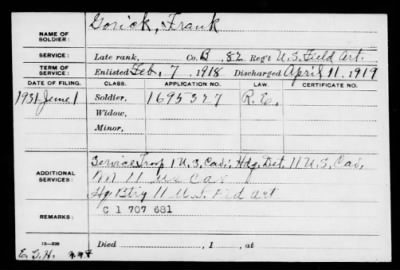 Gorick, Frank
NAME OF SOLDIER:
SERVICE: Late rank, Co. B, 82 Reg't U.S. Field Art.
TERM OF SERVICE: Enlisted Feb. 7, 1918 Discharged April 11, 1919
DATE OF FILING. CLASS. APPLICATION NO. LAW. CERTIFICATE NO.
1931 June 1 Soldier, 1695327
Widow,
Minor,
ADDITIONAL SERVICES: Service Troop 1 U.S. Cav; Hdq. Det. 11 U.S. Cav,
11 U.S. Cav
Hq Btry 11 U.S. Fld Art
REMARKS: C 1 707 681
Died , 1 , at
E.G.H.